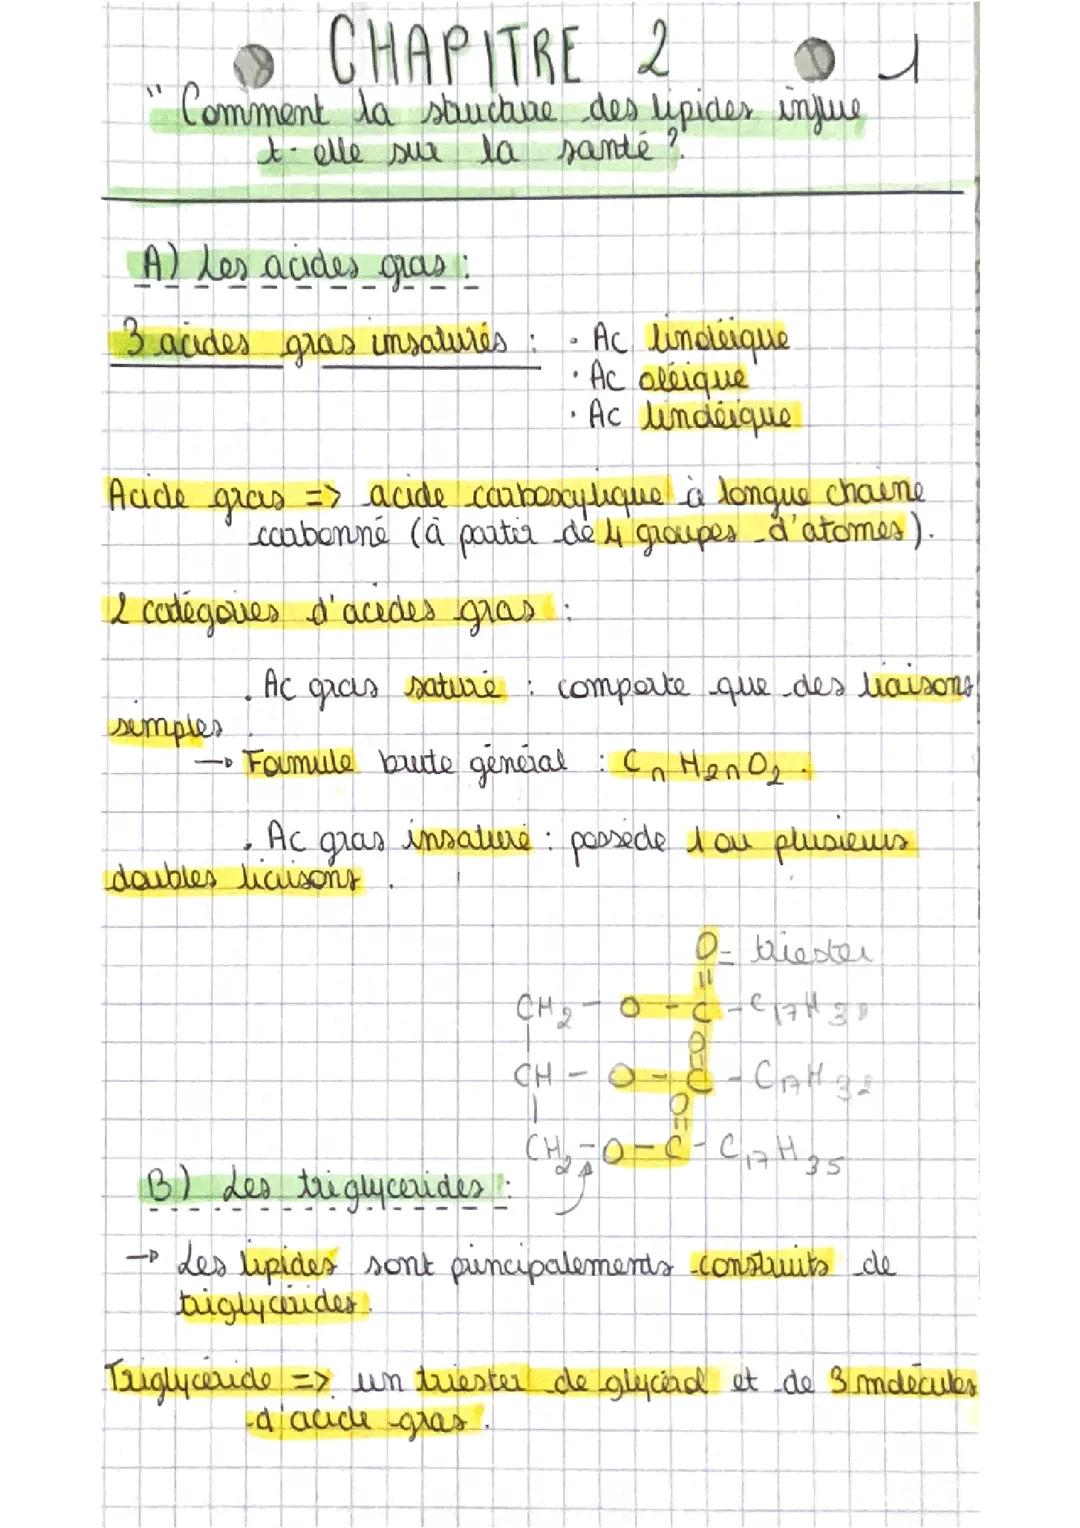 CHAPITRE 2 1
"Comment la structure des lipides influe
t-elle sur la santé ?
A) Les acides gras :
3 acides gras insaturés : • Ac linoléique
• Ac oléique
• Ac linoléique
Acide gras => acide carboxylique à longue chaine
carbonné (à partir de 4 groupes d'atomes).
2 catégories d'acides gras :
. Ac gras saturé : comporte que des liaisons
simples.
→ Formule brute général : CnH2nO2.
. Ac gras insaturé : possède 1 ou plusieurs
doubles liaisons.
O = triester
||
CH2 - O - C - C17H
| O
||
CH - O - C - C17H
| O
||
CH2 - O - C - C17H35
B) Les triglycerides :
→ Les lipides sont principalements construits de
triglycérides.
Triglycéride => un triester de glycérol et de 3 molécules
d'acide gras.